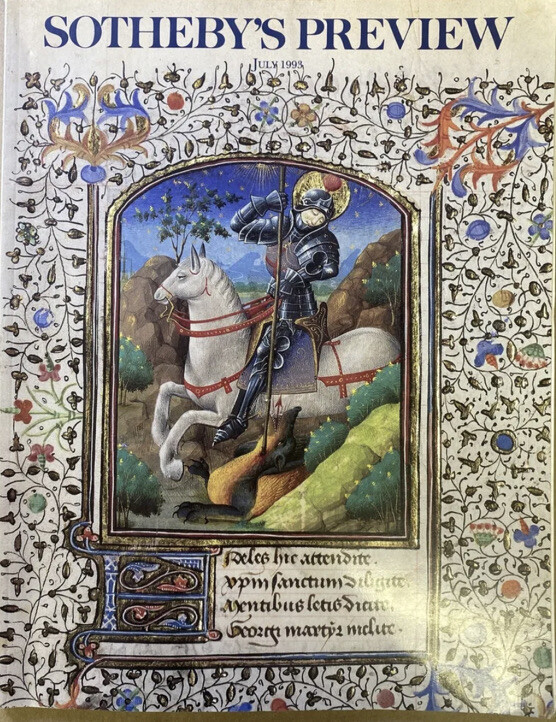 SOTHEBY'S PREVIEW
JULY 1993
Deles hic attendite .
xpm sanctum diligite.
Mentibus letis dicite.
Georgi martyr inclite .